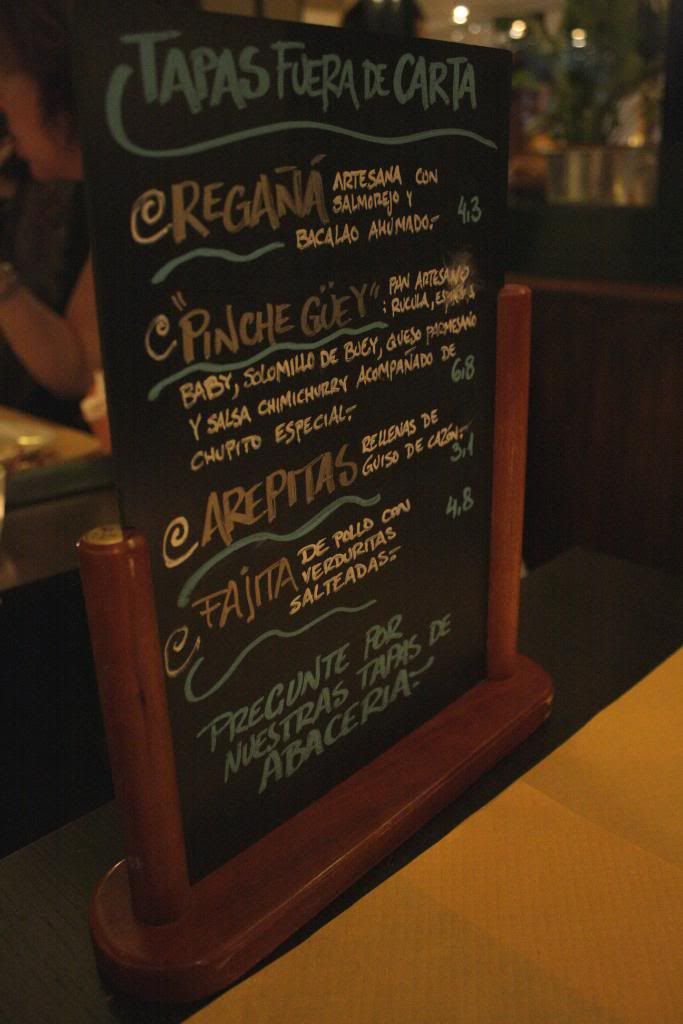 TAPAS FUERA DE CARTA
REGAÑÁ ARTESANA CON
SALMOREJO Y
BACALAO AHUMADO.- 4,3
"PINCHE GÜEY": PAN ARTESANO
RUCULA,
BABY, SOLOMILLO DE BUEY, QUESO PARMESANO
Y SALSA CHIMICHURRY ACOMPAÑADO DE
CHUPITO ESPECIAL.- 6,8
AREPITAS RELLENAS DE
GUISO DE CAZÓN.- 3,1
FAJITA DE POLLO CON 4,8
VERDURITAS
SALTEADAS.-
PREGUNTE POR
NUESTRAS TAPAS DE
ABACERIA.-